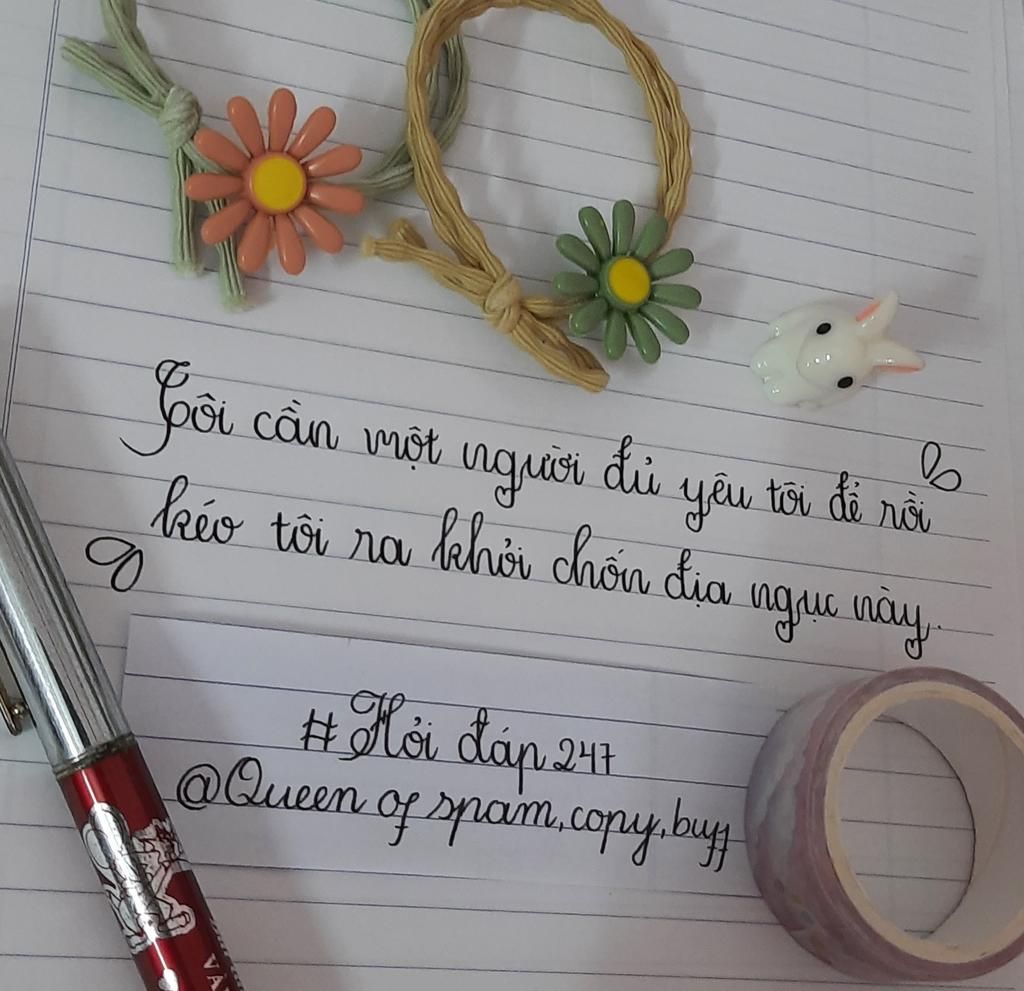 Tôi cần một người đủ yêu tôi để rồi
kéo tôi ra khỏi chốn địa ngục này.
#Hỏi đáp 247
@Queen of spam, copy, buff